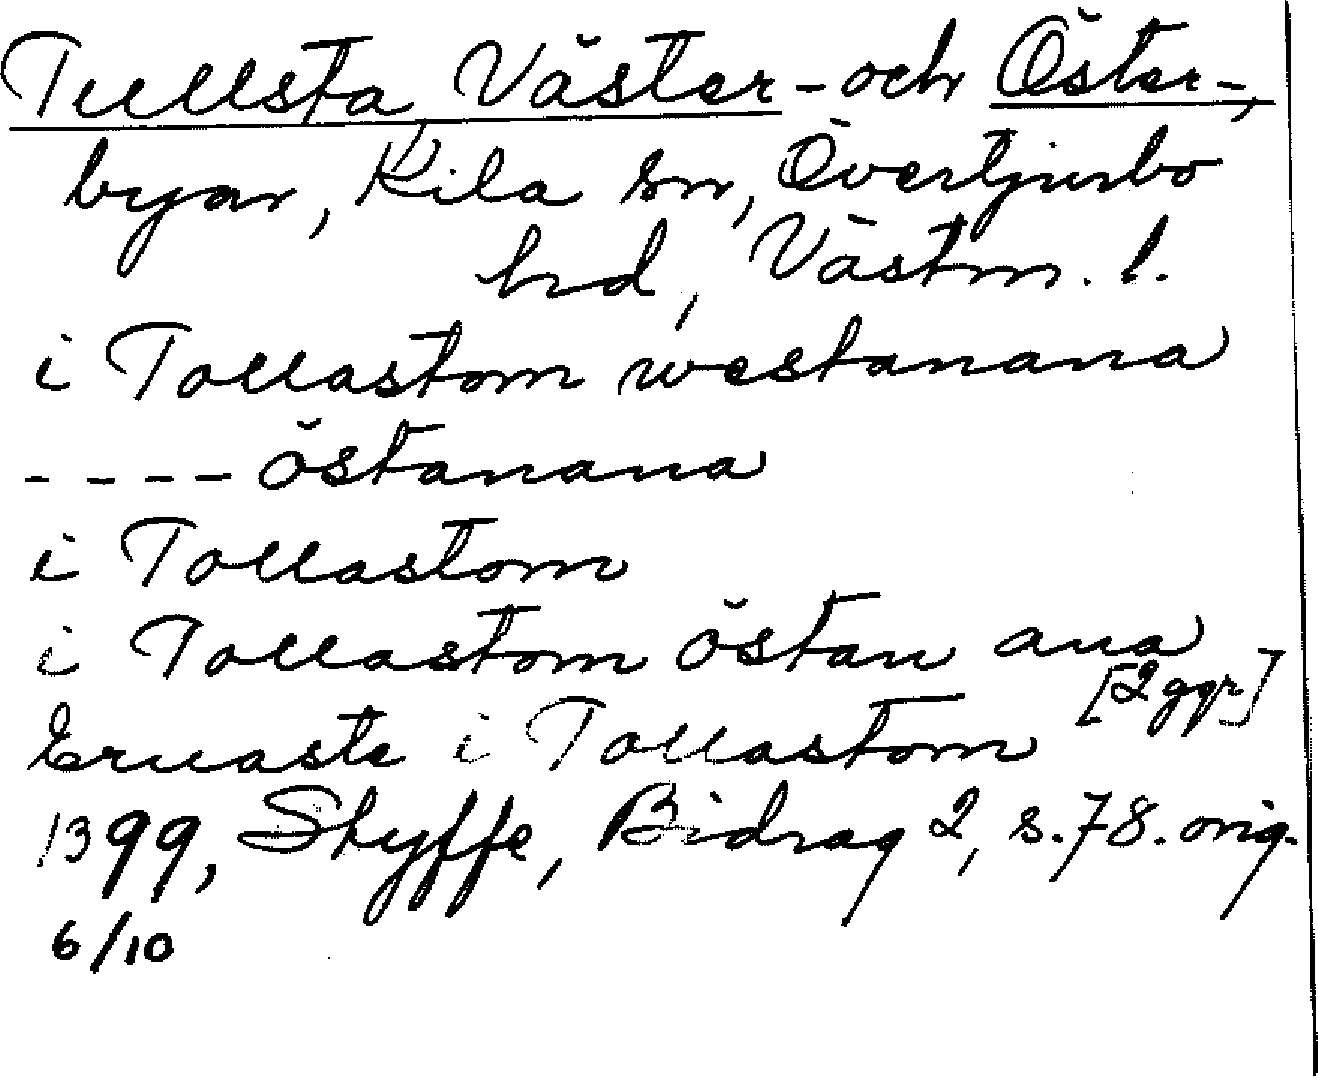 Tullsta, Väster- och Öster-,
byar, Kila sn, Övertjurbo
hd, Västm. l.
i Tollastom westanana
- - - - östanana
i Tollastom
i Tollastom östan ana
[2 ggr]
Ernaste i Tollastom
1399, Styffe, Bidrag 2, s. 78. orig.
6/10